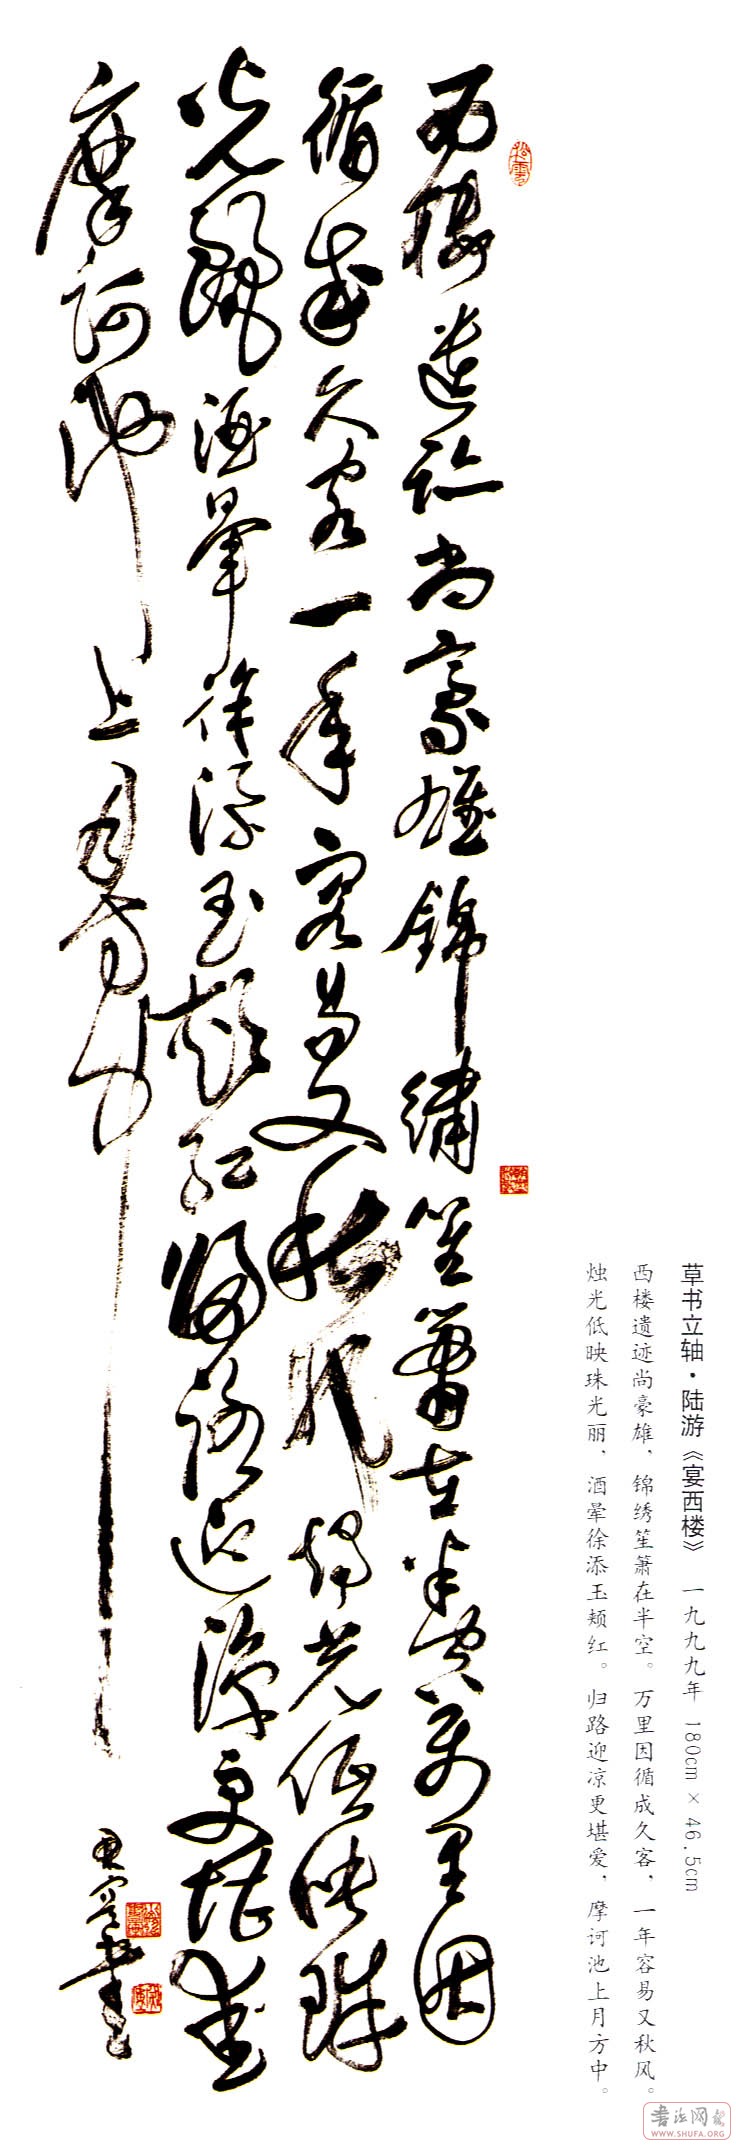 草书立轴·陆游《宴西楼》 一九九九年 180cm × 46.5cm
西楼遗迹尚豪雄，锦绣笙箫在半空。万里因循成久客，一年容易又秋风。
烛光低映珠光丽，酒晕徐添玉颊红。归路迎凉更堪爱，摩诃池上月方中。
西樓遺迹尚豪雄錦繡笙簫在半空萬里因
循成久客一年容易又秋风燭光低映珠
光麗酒暈徐添玉颊红歸路迎涼更堪愛
摩訶池上月方中
書
書法网
WWW.SHUFA.ORG